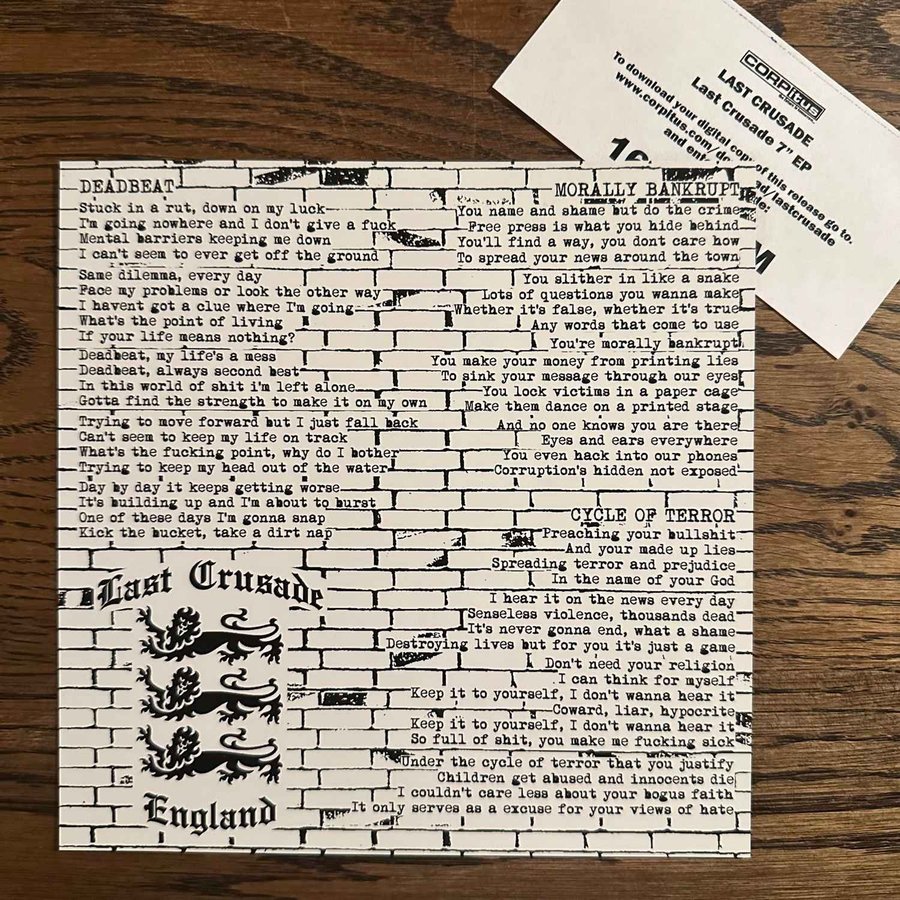 DEADBEAT
Stuck in a rut, down on my luck
I'm going nowhere and I don't give a fuck
Mental barriers keeping me down
I can't seem to ever get off the ground
Same dilemma, every day
Face my problems or look the other way
I havent got a clue where I'm going
What's the point of living
If your life means nothing?
Deadbeat, my life's a mess
Deadbeat, always second best
In this world of shit i'm left alone
Gotta find the strength to make it on my own
Trying to move forward but I just fall back
Can't seem to keep my life on track
What's the fucking point, why do I bother
Trying to keep my head out of the water
Day by day it keeps getting worse
It's building up and I'm about to burst
One of these days I'm gonna snap
Kick the bucket, take a dirt nap
Last Crusade
England
MORALLY BANKRUPT
You name and shame but do the crime
Free press is what you hide behind
You'll find a way, you dont care how
To spread your news around the town
You slither in like a snake
Lots of questions you wanna make
Whether it's false, whether it's true
Any words that come to use
You're morally bankrupt
You make your money from printing lies
To sink your message through our eyes
You lock victims in a paper cage
Make them dance on a printed stage
And no one knows you are there
Eyes and ears everywhere
You even hack into our phones
Corruption's hidden not exposed
CYCLE OF TERROR
Preaching your bullshit
And your made up lies
Spreading terror and prejudice
In the name of your God
I hear it on the news every day
Senseless violence, thousands dead
It's never gonna end, what a shame
Destroying lives but for you it's just a game
Don't need your religion
I can think for myself
Keep it to yourself, I don't wanna hear it
Coward, liar, hypocrite
Keep it to yourself, I don't wanna hear it
So full of shit, you make me fucking sick
Under the cycle of terror that you justify
Children get abused and innocents die
I couldn't care less about your bogus faith
It only serves as a excuse for your views of hate
CORPITUS
LAST CRUSADE
Last Crusade 7" EP
To download your digital copy of this release go to.
www.corpitus.com/ ad/lastcrusade
and